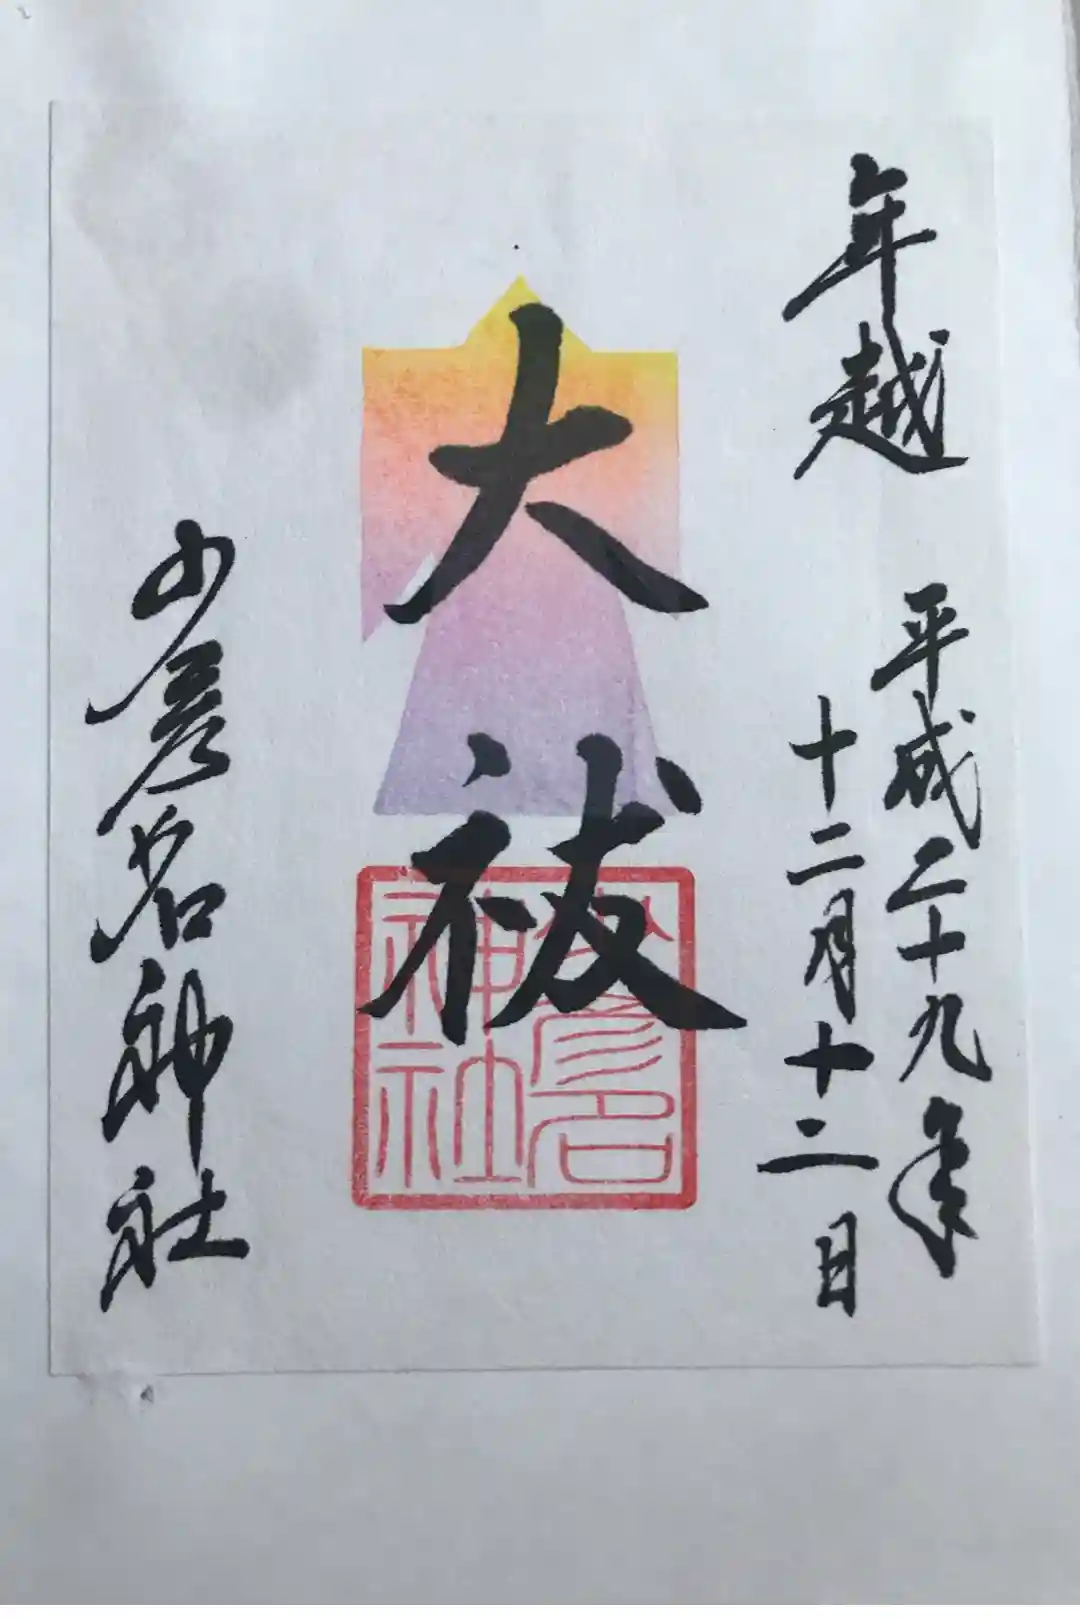 年越
平成二十九年
十二月十二日
大祓
少彦名神社
少彦名
神社